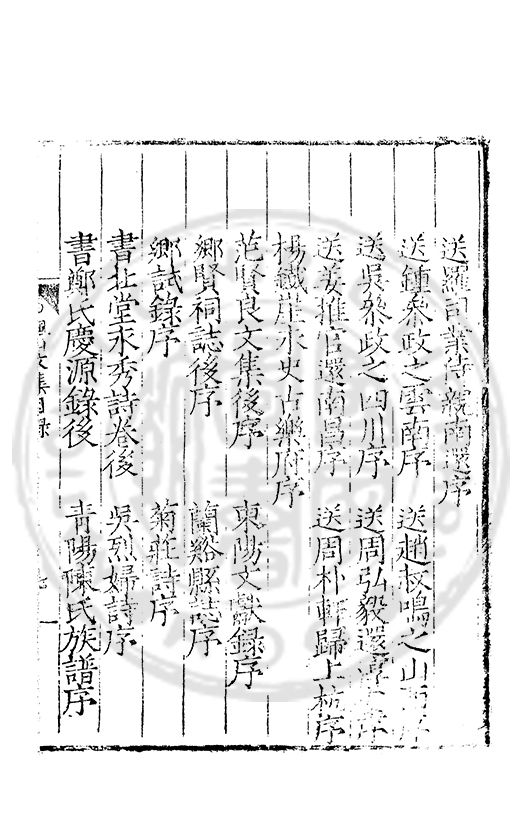 送羅司業侍親南還序
送鍾叅政之雲南序 送趙叔鳴之山西序
送吳叅政之四川序 送周弘毅還序
送姜推官還南昌序 送周朴軒歸上杭序
楊鐵崖永史古樂府序
范賢良文集後序 東陽文獻錄序
鄉賢祠誌後序 蘭谿縣誌序
鄉試錄序 菊莊詩序
書北堂永秀詩卷後 吳烈婦詩序
書鄭氏慶源錄後 青陽陳氏族譜序
文集目錄